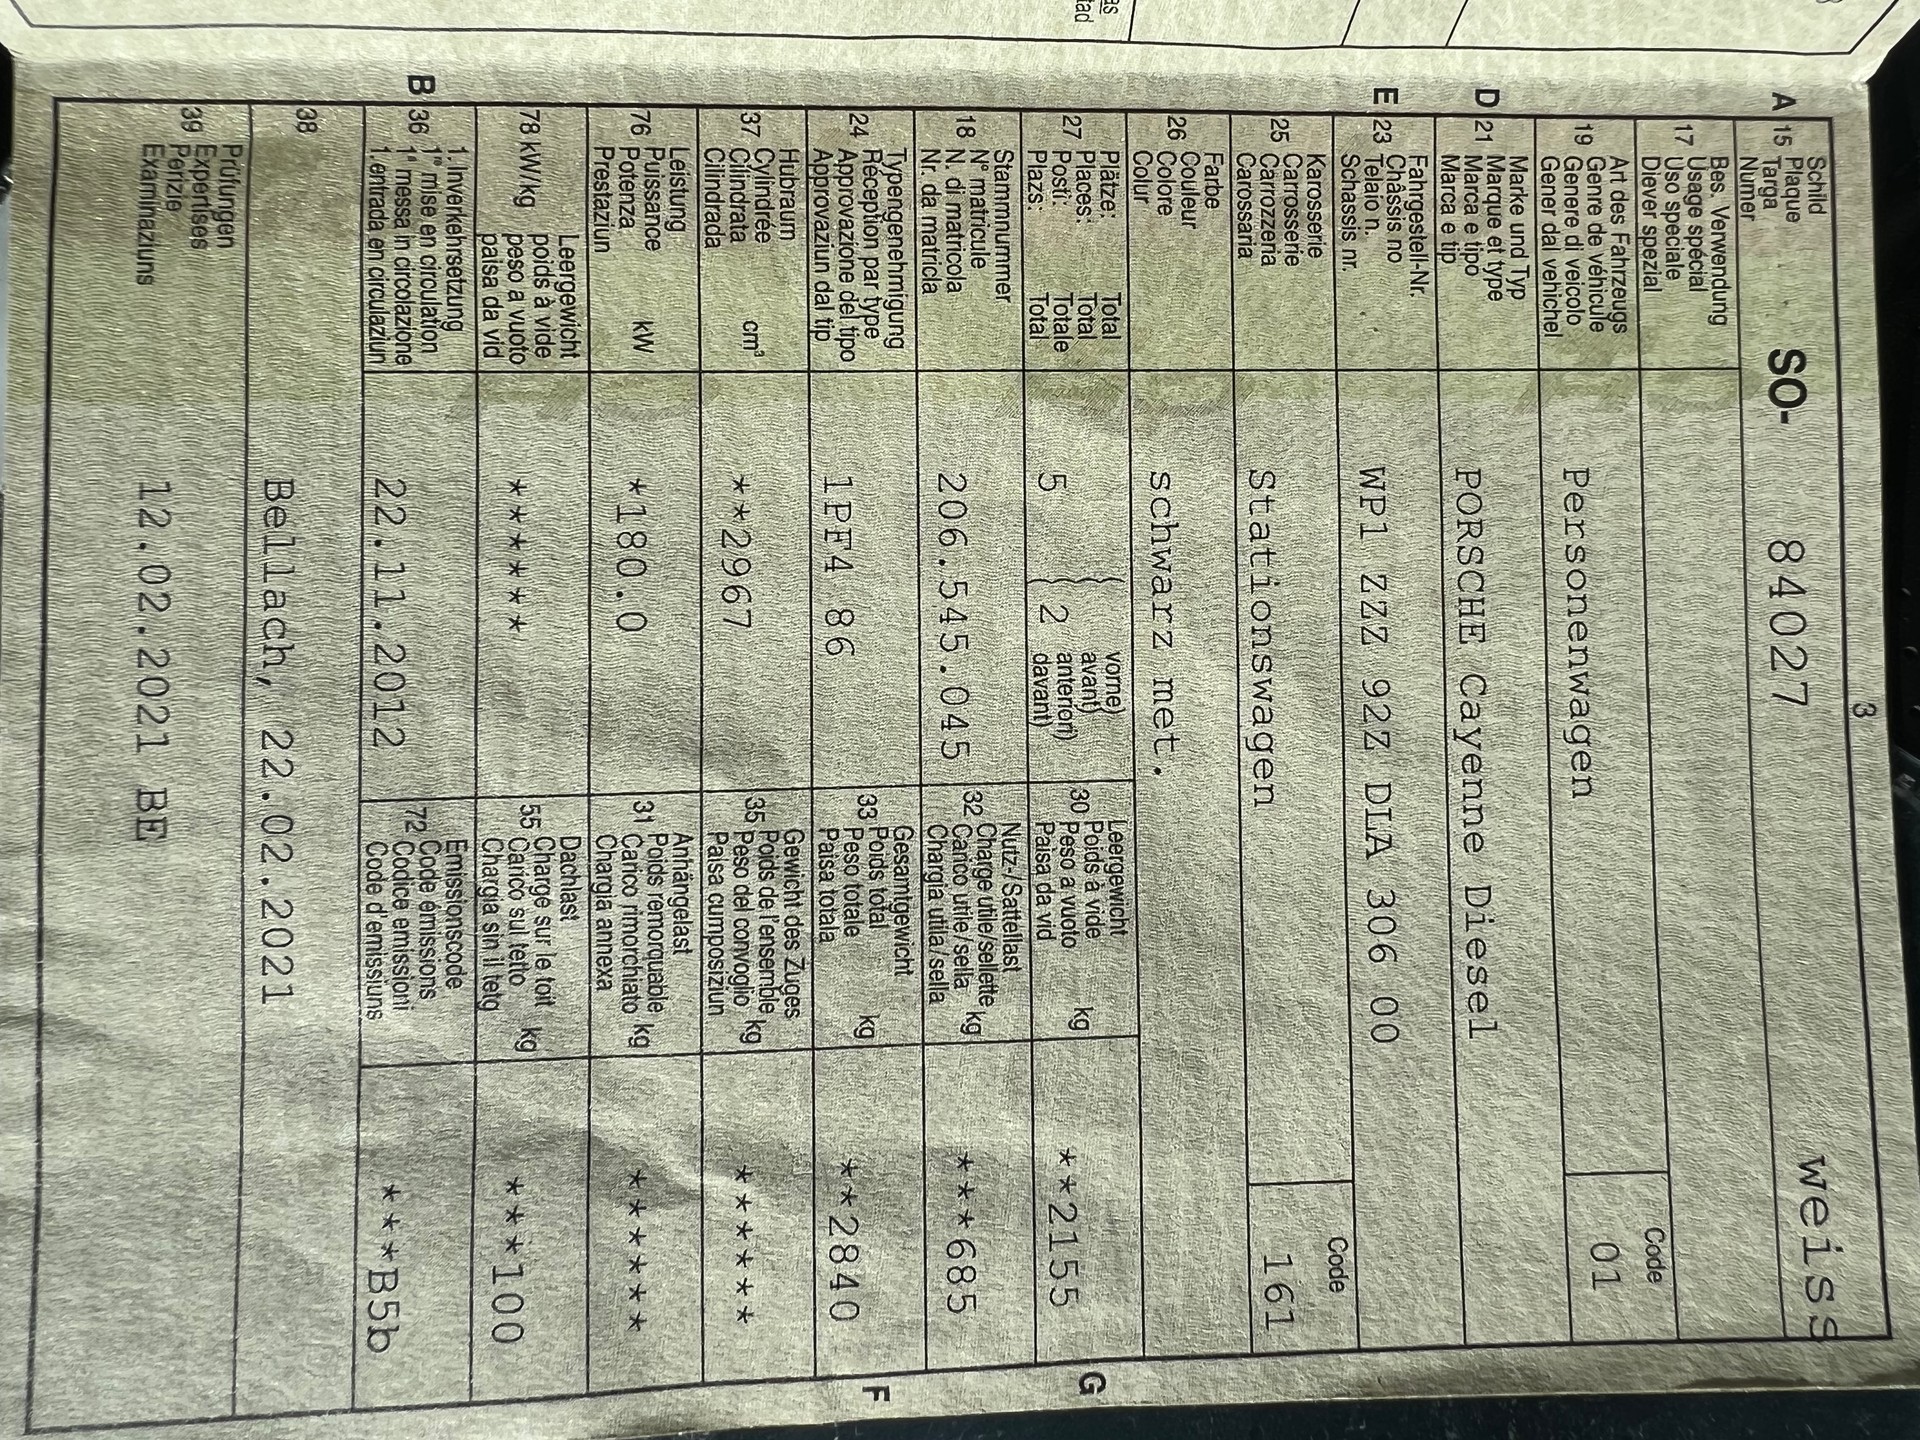 3
Schild
A 15 Plaque
Targa
Numer
SO- 84027 weiss
Bes. Verwendung
17 Usage spécial
Uso speciale
Diever spezial
Art des Fahrzeugs
19 Genre de véhicule
Genere di veicolo
Gener dal vehichel
Personenwagen
Code
01
Marke und Typ
D 21 Marque et type
Marca e tipo
Marca e tip
PORSCHE Cayenne Diesel
Fahrgestell-Nr.
E 23 Châssis no
Telaio n.
Schassis nr.
WP1 ZZZ 92Z DLA 306 00
Karosserie
25 Carrosserie
Carrozzeria
Carossaria
Stationswagen
Code
161
Farbe
26 Couleur
Colore
Colur
schwarz met.
Plätze: Total
27 Places: Total
Posti: Totale
Plazs: Total
5 2
vorne)
avant)
anteriori)
davant)
Leergewicht
30 Poids à vide
Peso a vuoto kg
Paisa da vid
**2155 G
Stammnummer
18 N° matricule
N. di matricola
Nr. da matricla
206.545.045
Nutz-/Sattellast
32 Charge utile/sellette
Carico utile/sella kg
Chargia utila/sella
***685
Typengenehmigung
24 Réception par type
Approvazione del tipo
Approvaziun dal tip
1PF4 86
Gesamtgewicht
33 Poids total
Peso totale kg
Paisa totala
**2840 F
Hubraum
37 Cylindrée
Cilindrata cm³
Cilindrada
**2967
Gewicht des Zuges
35 Poids de l'ensemble
Peso del convoglio kg
Paisa cumposiziun
******
Leistung
76 Puissance
Potenza kW
Prestaziun
*180.0
Anhängelast
31 Poids remorquable
Carico rimorchiato kg
Chargia annexa
******
Leergewicht
78 kW/kg poids à vide
peso a vuoto
paisa da vid
******
Dachlast
55 Charge sur le toit
Carico sul tetto kg
Chargia sin il tetg
***100
1. Inverkehrsetzung
B 36 1re mise en circulation
1a messa in circolazione
1. entrada en circulaziun
22.11.2012
Emissionscode
72 Code émissions
Codice emissioni
Code d'emissiuns
***B5b
38
Bellach, 22.02.2021
Prüfungen
39 Expertises
Perizie
Examinaziuns
12.02.2021 BE